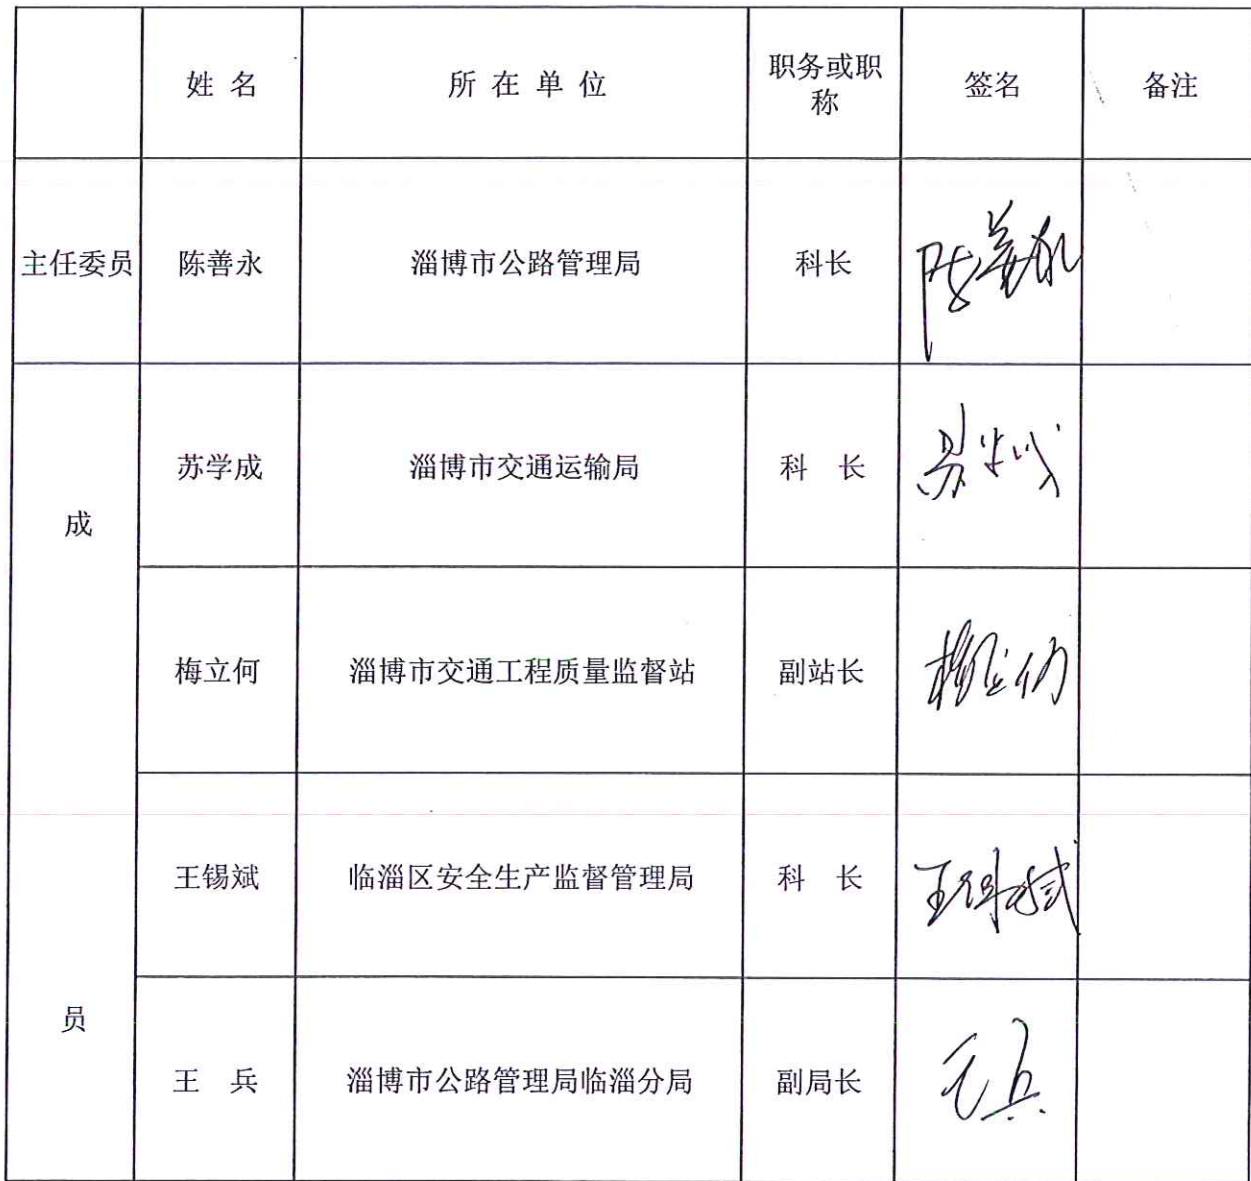 姓 名 所 在 单 位 职务或职 签名 备注
称
主任委员 陈善永 淄博市公路管理局 科长 陈善永
苏学成 淄博市交通运输局 科 长 苏学成
成
梅立何 淄博市交通工程质量监督站 副站长 梅立何
王锡斌 临淄区安全生产监督管理局 科 长 王锡斌
员
王 兵 淄博市公路管理局临淄分局 副局长 王兵